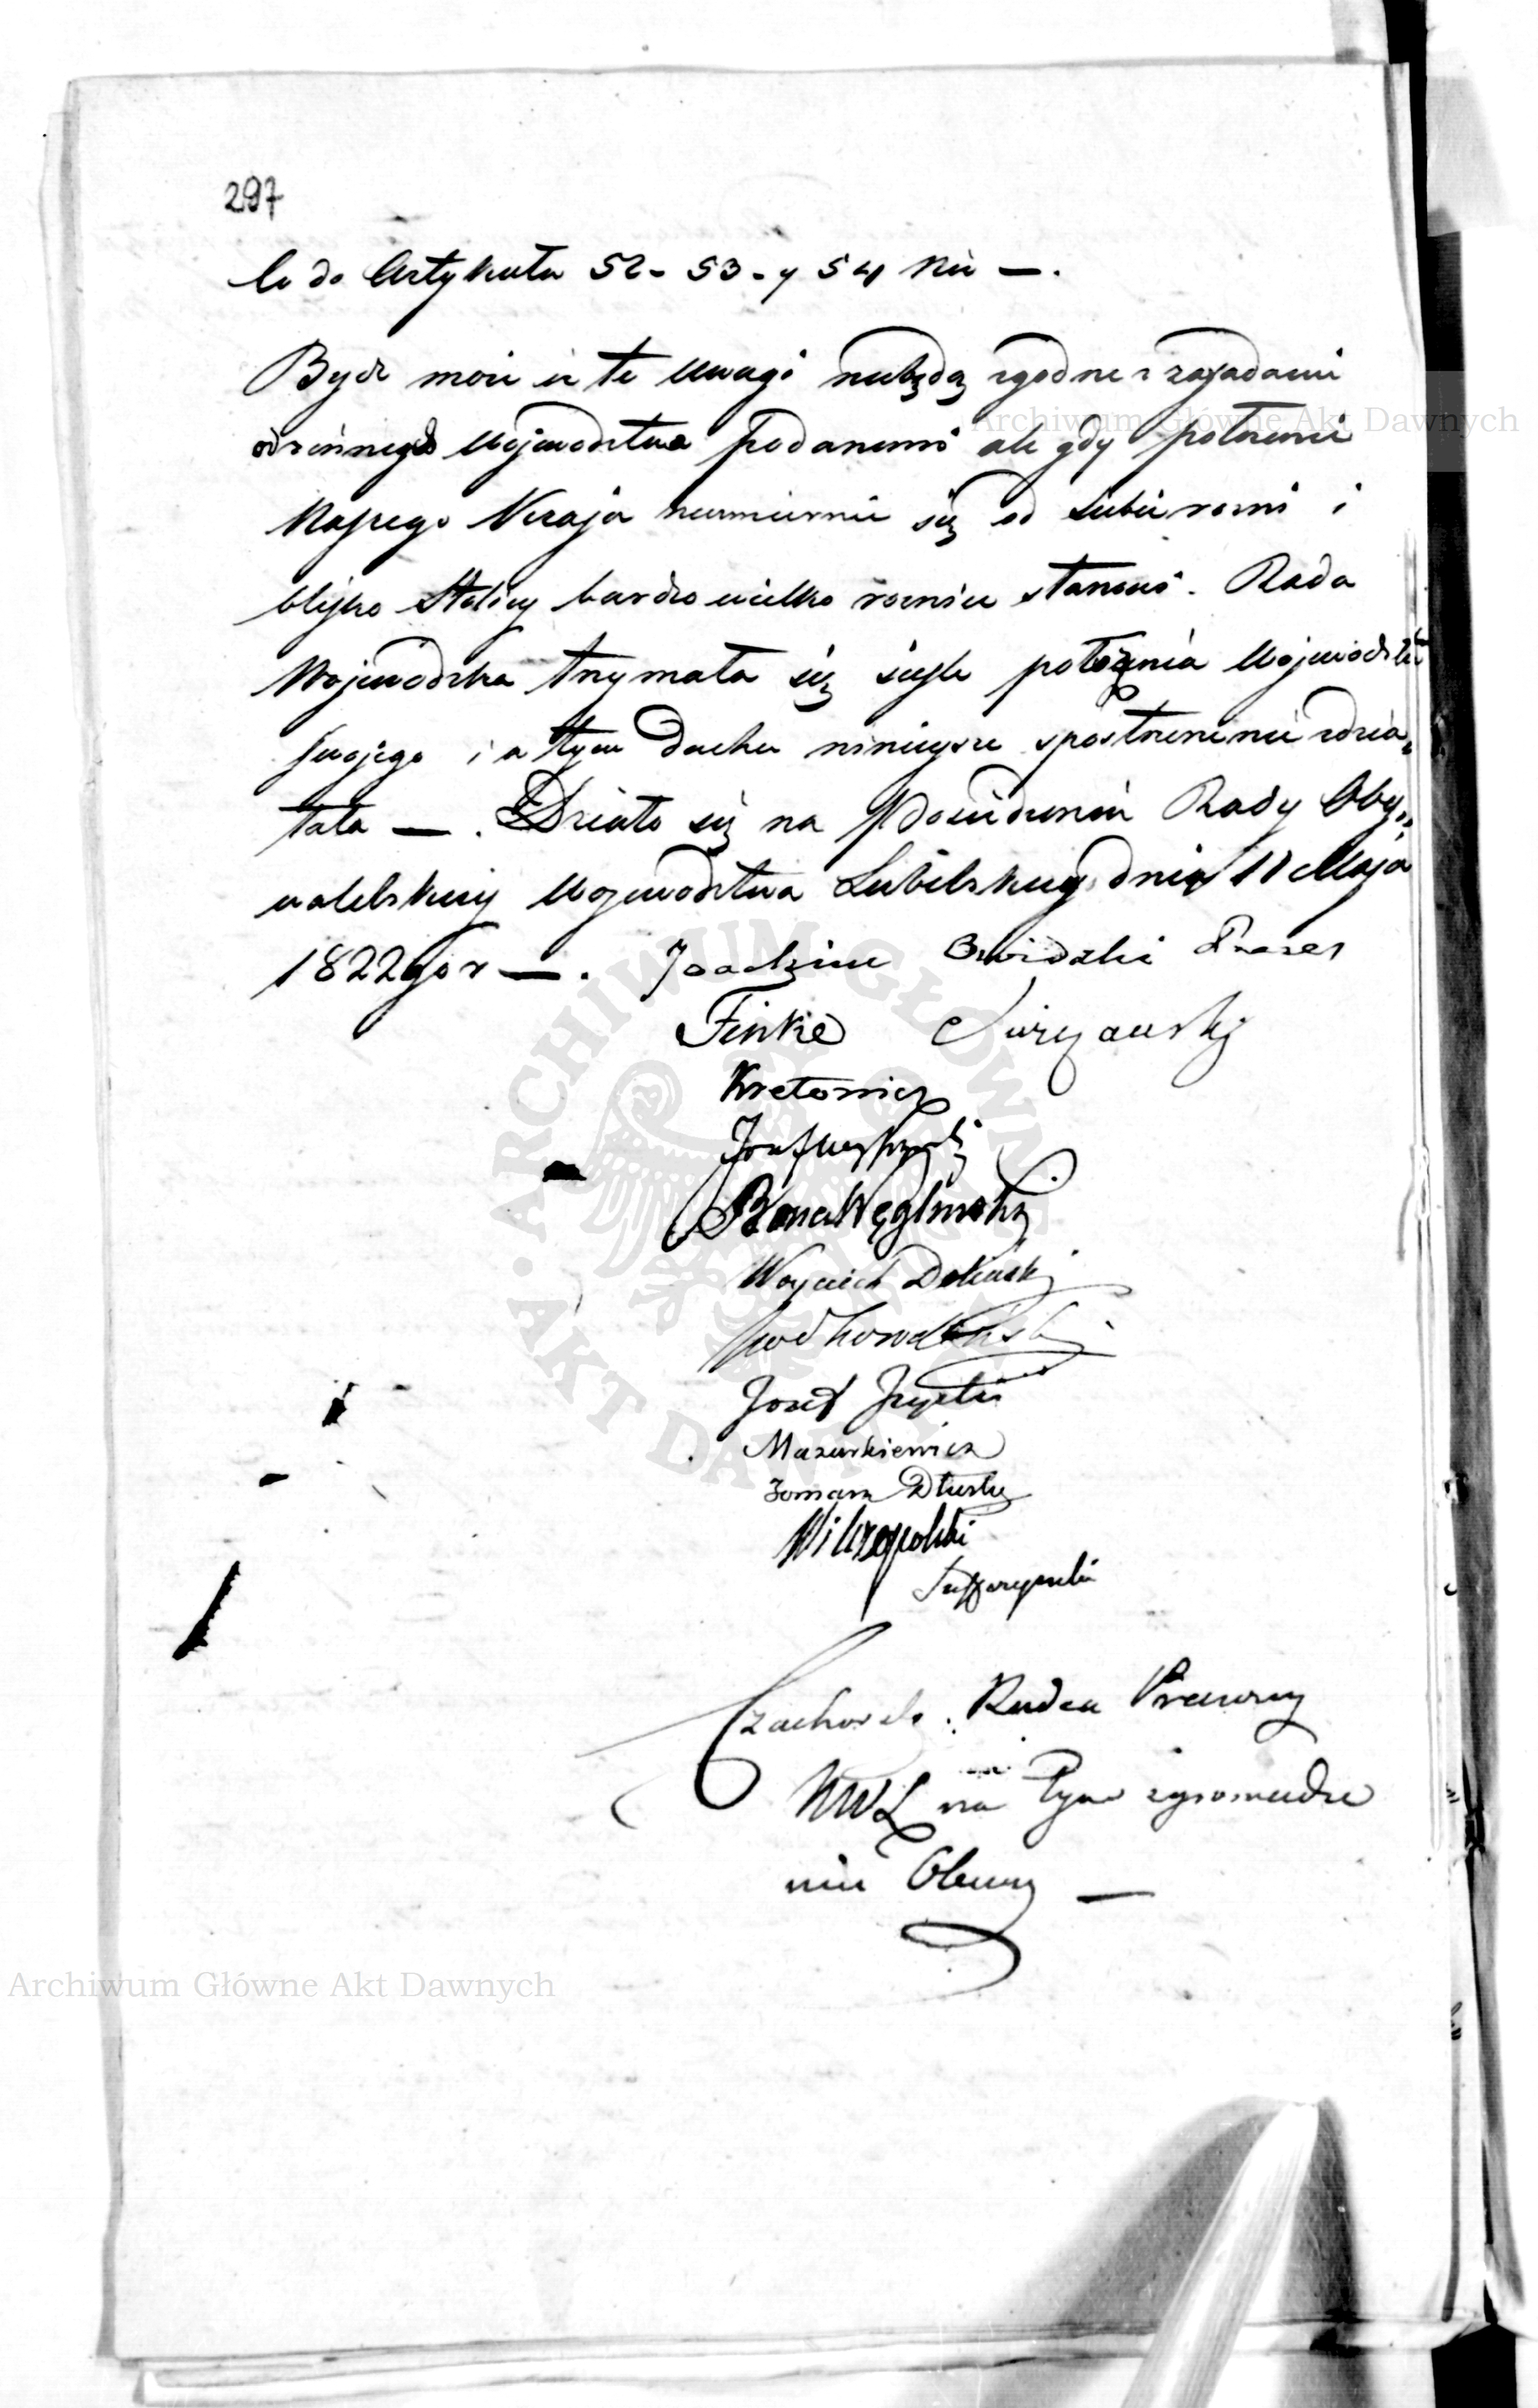 297
Co do Artykułu 52 - 53 - y 54 Nic —.
Bydź może iż te uwagi niebędą zgodne z zasadami
z innego Województwa podanemi ale gdy położenie
Naszego Kraju niezmiernie się od siebie rożni i
blisko Stolicy bardzo wielko roznice stanowi. Rada
Wojewodzka trzymała się ściśle położenia Wojewodztwa
swojego i w tym duchu ninieysze spostrzeżenie zdzia„
łała —. Działo się na Posiedzeniu Rady Oby„
watelskiey Wojewodztwa Lubelskiego dnia 11 Maja
1822go r —. Joachim Owidzki Prezes
Finke Suryn
Kretowicz
Jozef
Węgliński
Woyciech Dekański
Podhorodeński
Jozef
Mazurkiewicz
Tomasz Dłuski
Wilczopolski
Suffczynski
Czachorski Radca Prawny
KWL na Tym zgromadze
niu Obecny —
Archiwum Główne Akt Dawnych
Archiwum Główne Akt Dawnych
ARCHIWUM GŁÓWNE AKT DAWNYCH